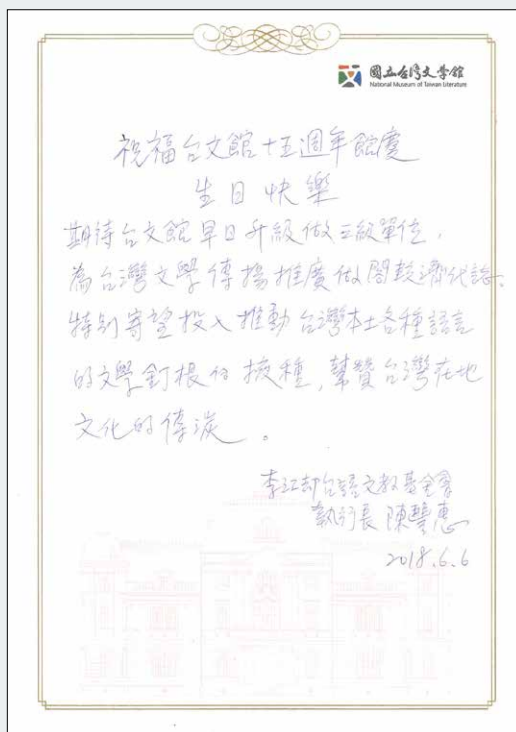 國立台灣文學館
National Museum of Taiwan Literature
祝福台文館十五週年館慶
生日快樂
期待台文館早日升級做三級單位，
為台灣文學傳揚推廣做閣較濟代誌。
特別寄望投入推動台灣本土各種語言
的文學釘根佮掖種，幫贊台灣在地
文化的傳湠。
李江却台語文教基金會
執行長 陳豐惠
2018.6.6